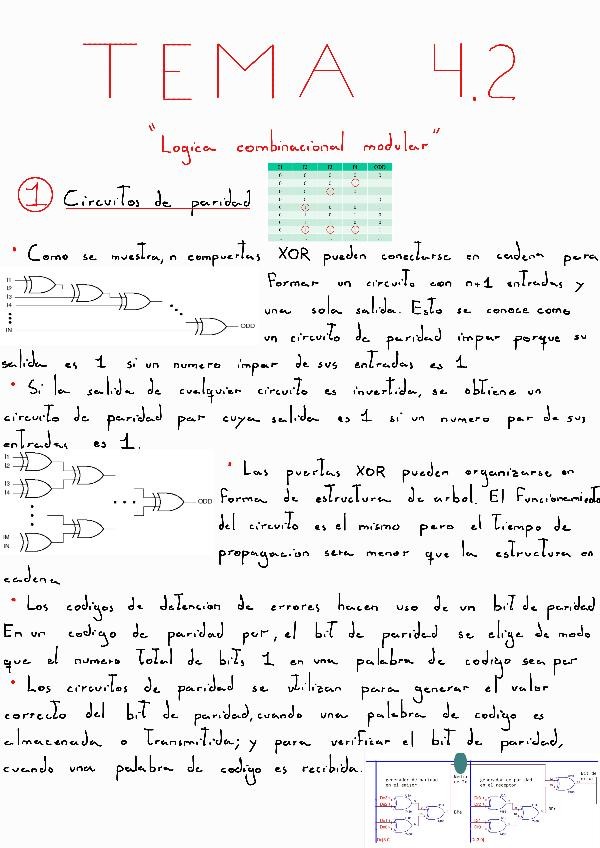 TEMA 4.2
"Logica combinacional modular"
1 Circuitos de paridad
I1 I2 I3 I4 ODD
• Como se muestra, n compuertas XOR pueden conectarse en cadena para
I1
I2
I3
I4
IN
ODD
formar un circuito con n+1 entradas y
una sola salida. Esto se conoce como
un circuito de paridad impar porque su
salida es 1 si un numero impar de sus entradas es 1
• Si la salida de cualquier circuito es invertida, se obtiene un
circuito de paridad par cuya salida es 1 si un numero par de sus
entradas es 1.
I1
I2
I3
I4
IM
IN
ODD
• Las puertas XOR pueden organizarse en
forma de estructura de arbol. El funcionamiento
del circuito es el mismo pero el tiempo de
propagacion sera menor que la estructura en
cadena
• Los codigos de detencion de errores hacen uso de un bit de paridad
En un codigo de paridad par, el bit de paridad se elige de modo
que el numero total de bits 1 en una palabra de codigo sea par
• Los circuitos de paridad se utilizan para generar el valor
correcto del bit de paridad, cuando una palabra de codigo es
almacenada o transmitida; y para verificar el bit de paridad,
cuando una palabra de codigo es recibida.
generador de paridad
en el emisor
generador de paridad
en el receptor